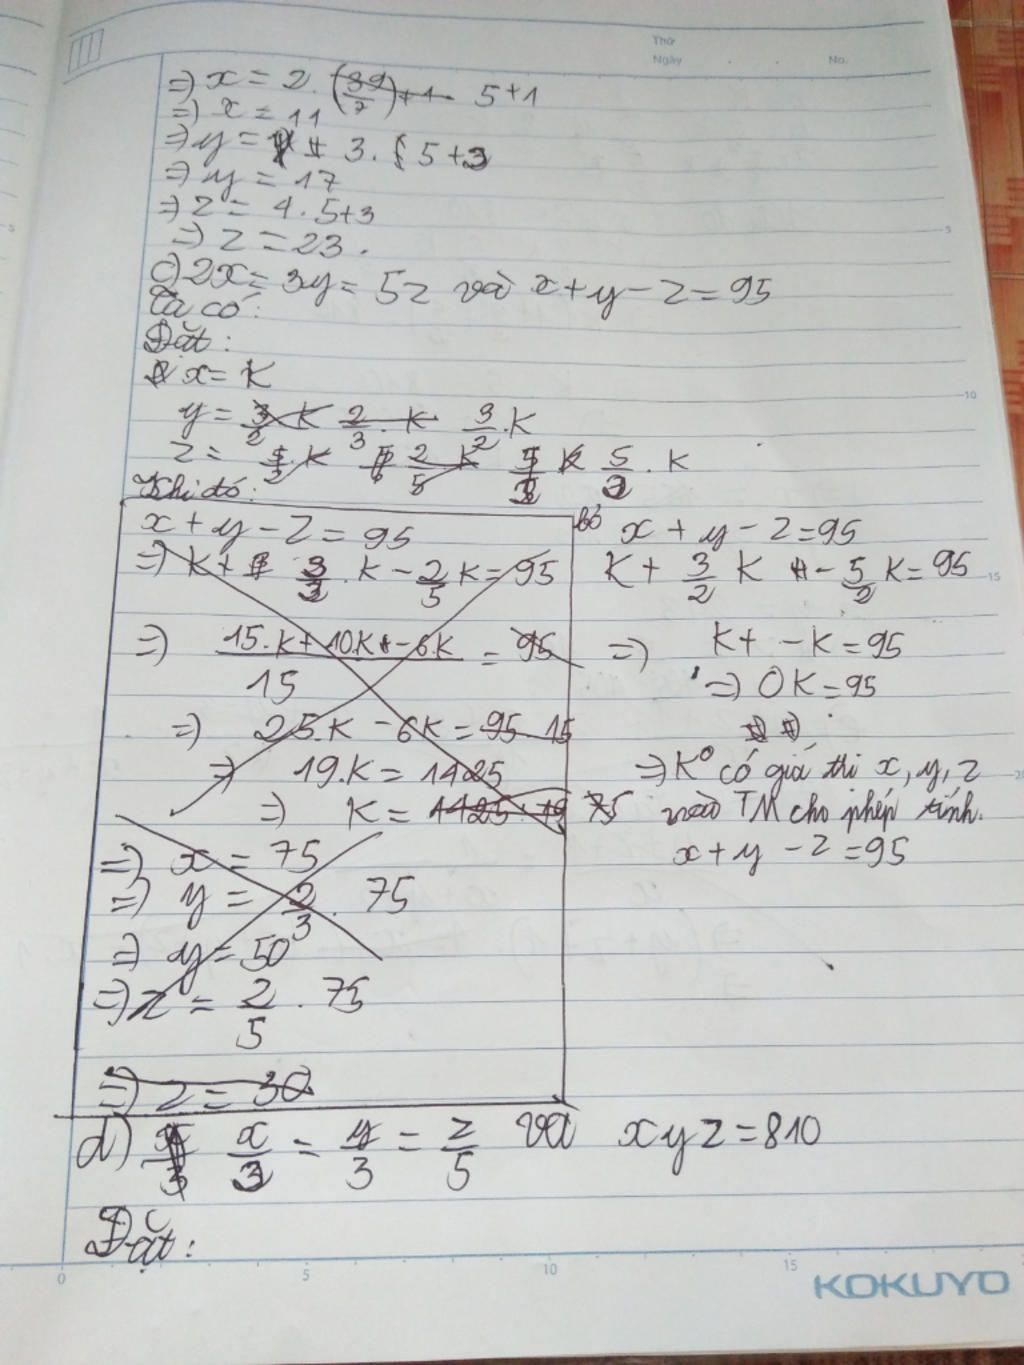 Thứ
Ngày . . No.
=> x = 2. (39/7)+1 5+1
=> x = 11
=> y = 3. 5+3
=> y = 17
=> z = 4.5+3
=> z = 23.
c) 2x = 3y = 5z và x+y-z=95
Ta có:
Đặt:
x = K
y = 3/2 K 2/3 . K 3/2 . K
z = 5/2 . K 2/5 K K 5/2 . K
Khi đó:
x+y-z=95
=> K + 2/3 . K - 2/5 K = 95
=> 15.K+10K-6.K / 15 = 95
=> 25.K - 6K = 95 . 15
=> 19.K = 1425
=> K = 1425 : 19 75
=> x = 75
=> y = 2/3 . 75
=> y = 50
=> z = 2/5 . 75
=> z = 30
bỏ x + y - z = 95
K + 3/2 K - 5/2 K = 95
=> K + - K = 95
=> 0K = 95
=> K⁰ có giá thi x, y, z
nào TM cho phép tính.
x+y-z=95
d) x/3 = y/3 = z/5 và xyz = 810
Đặt:
0 5 10 15
KOKUYO